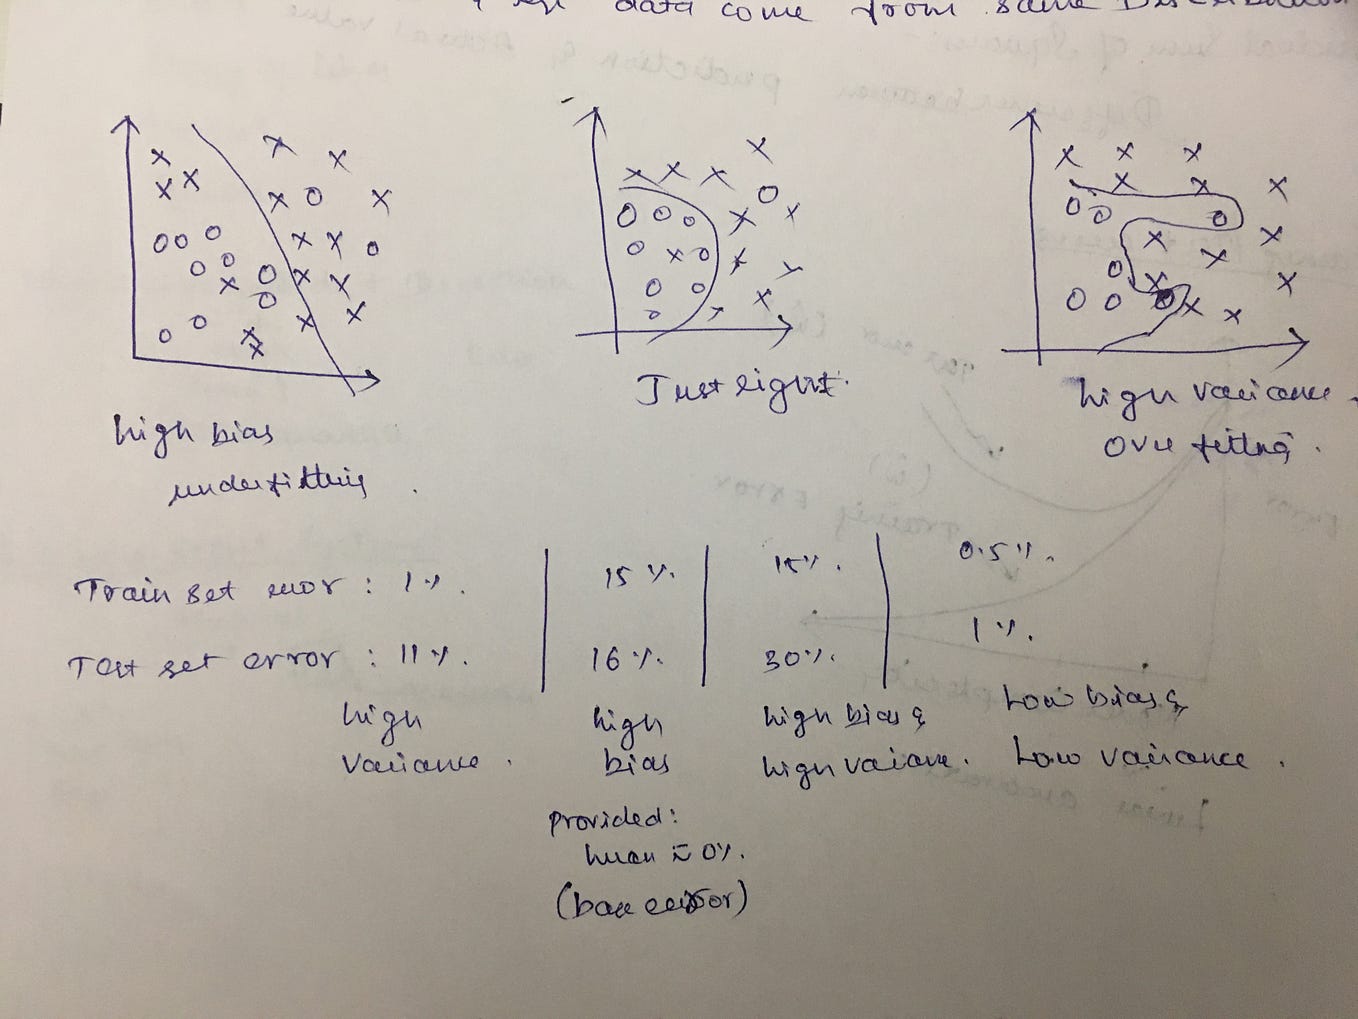 data come from same Distribution
Just right.
high bias
underfitting.
high variance
over fitting.
Train set error : 1%. | 15%. | 15%. | 0.5%.
Test set error : 11%. | 16%. | 30%. | 1%.
high variance.
high bias
high bias &
high variance.
Low bias &
Low variance.
provided:
human ≈ 0%.